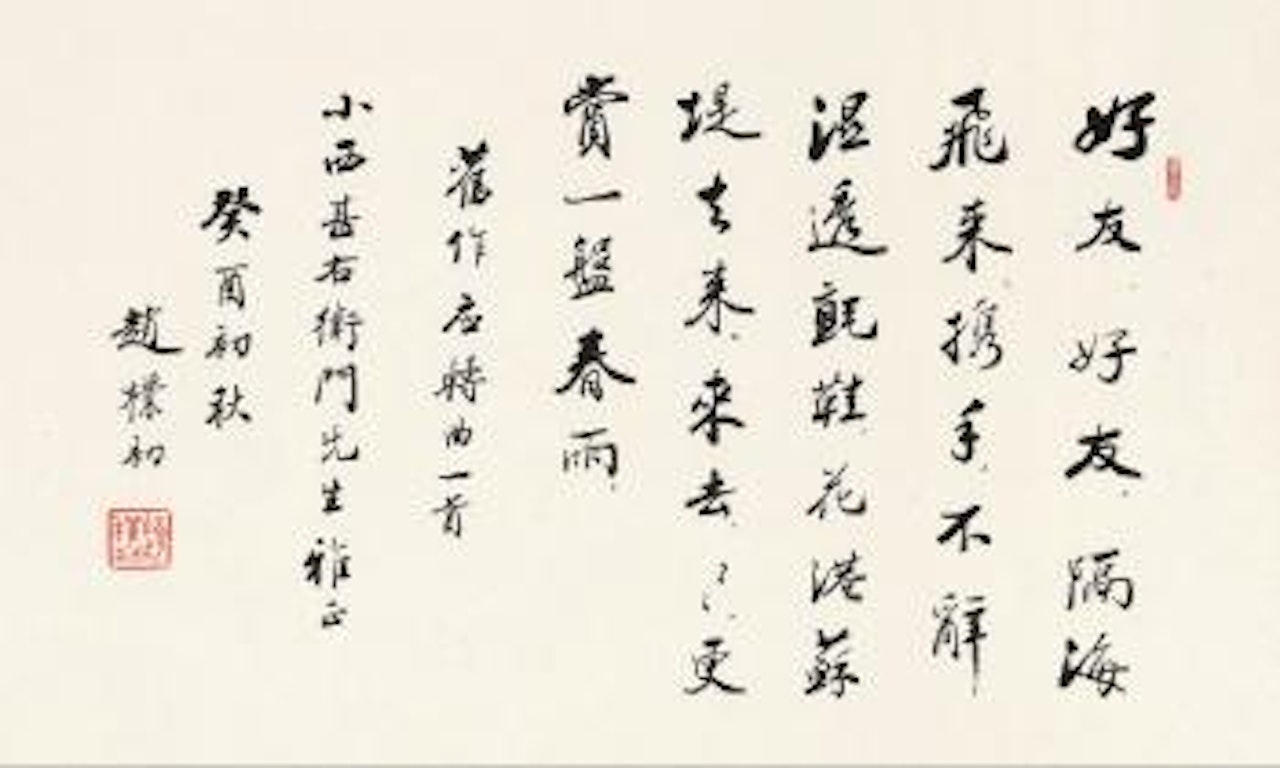 好友.好友.隔海
飛来携手.不辭
湿透氈鞋.花港蘇
堤去来.來去.〻〻.更
賞一盤春雨.
舊作应轉曲一首
小西甚右衛門先生雅正
癸酉初秋
趙樸初